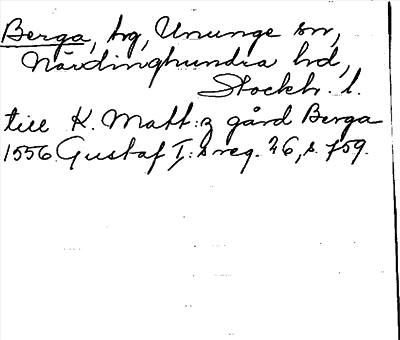 Berga, hg, Ununge sn,
Närdinghundra hd,
Stockh. l.
till K. Matt:z gård Berga
1556. Gustaf I:s reg. 26, s. 759.